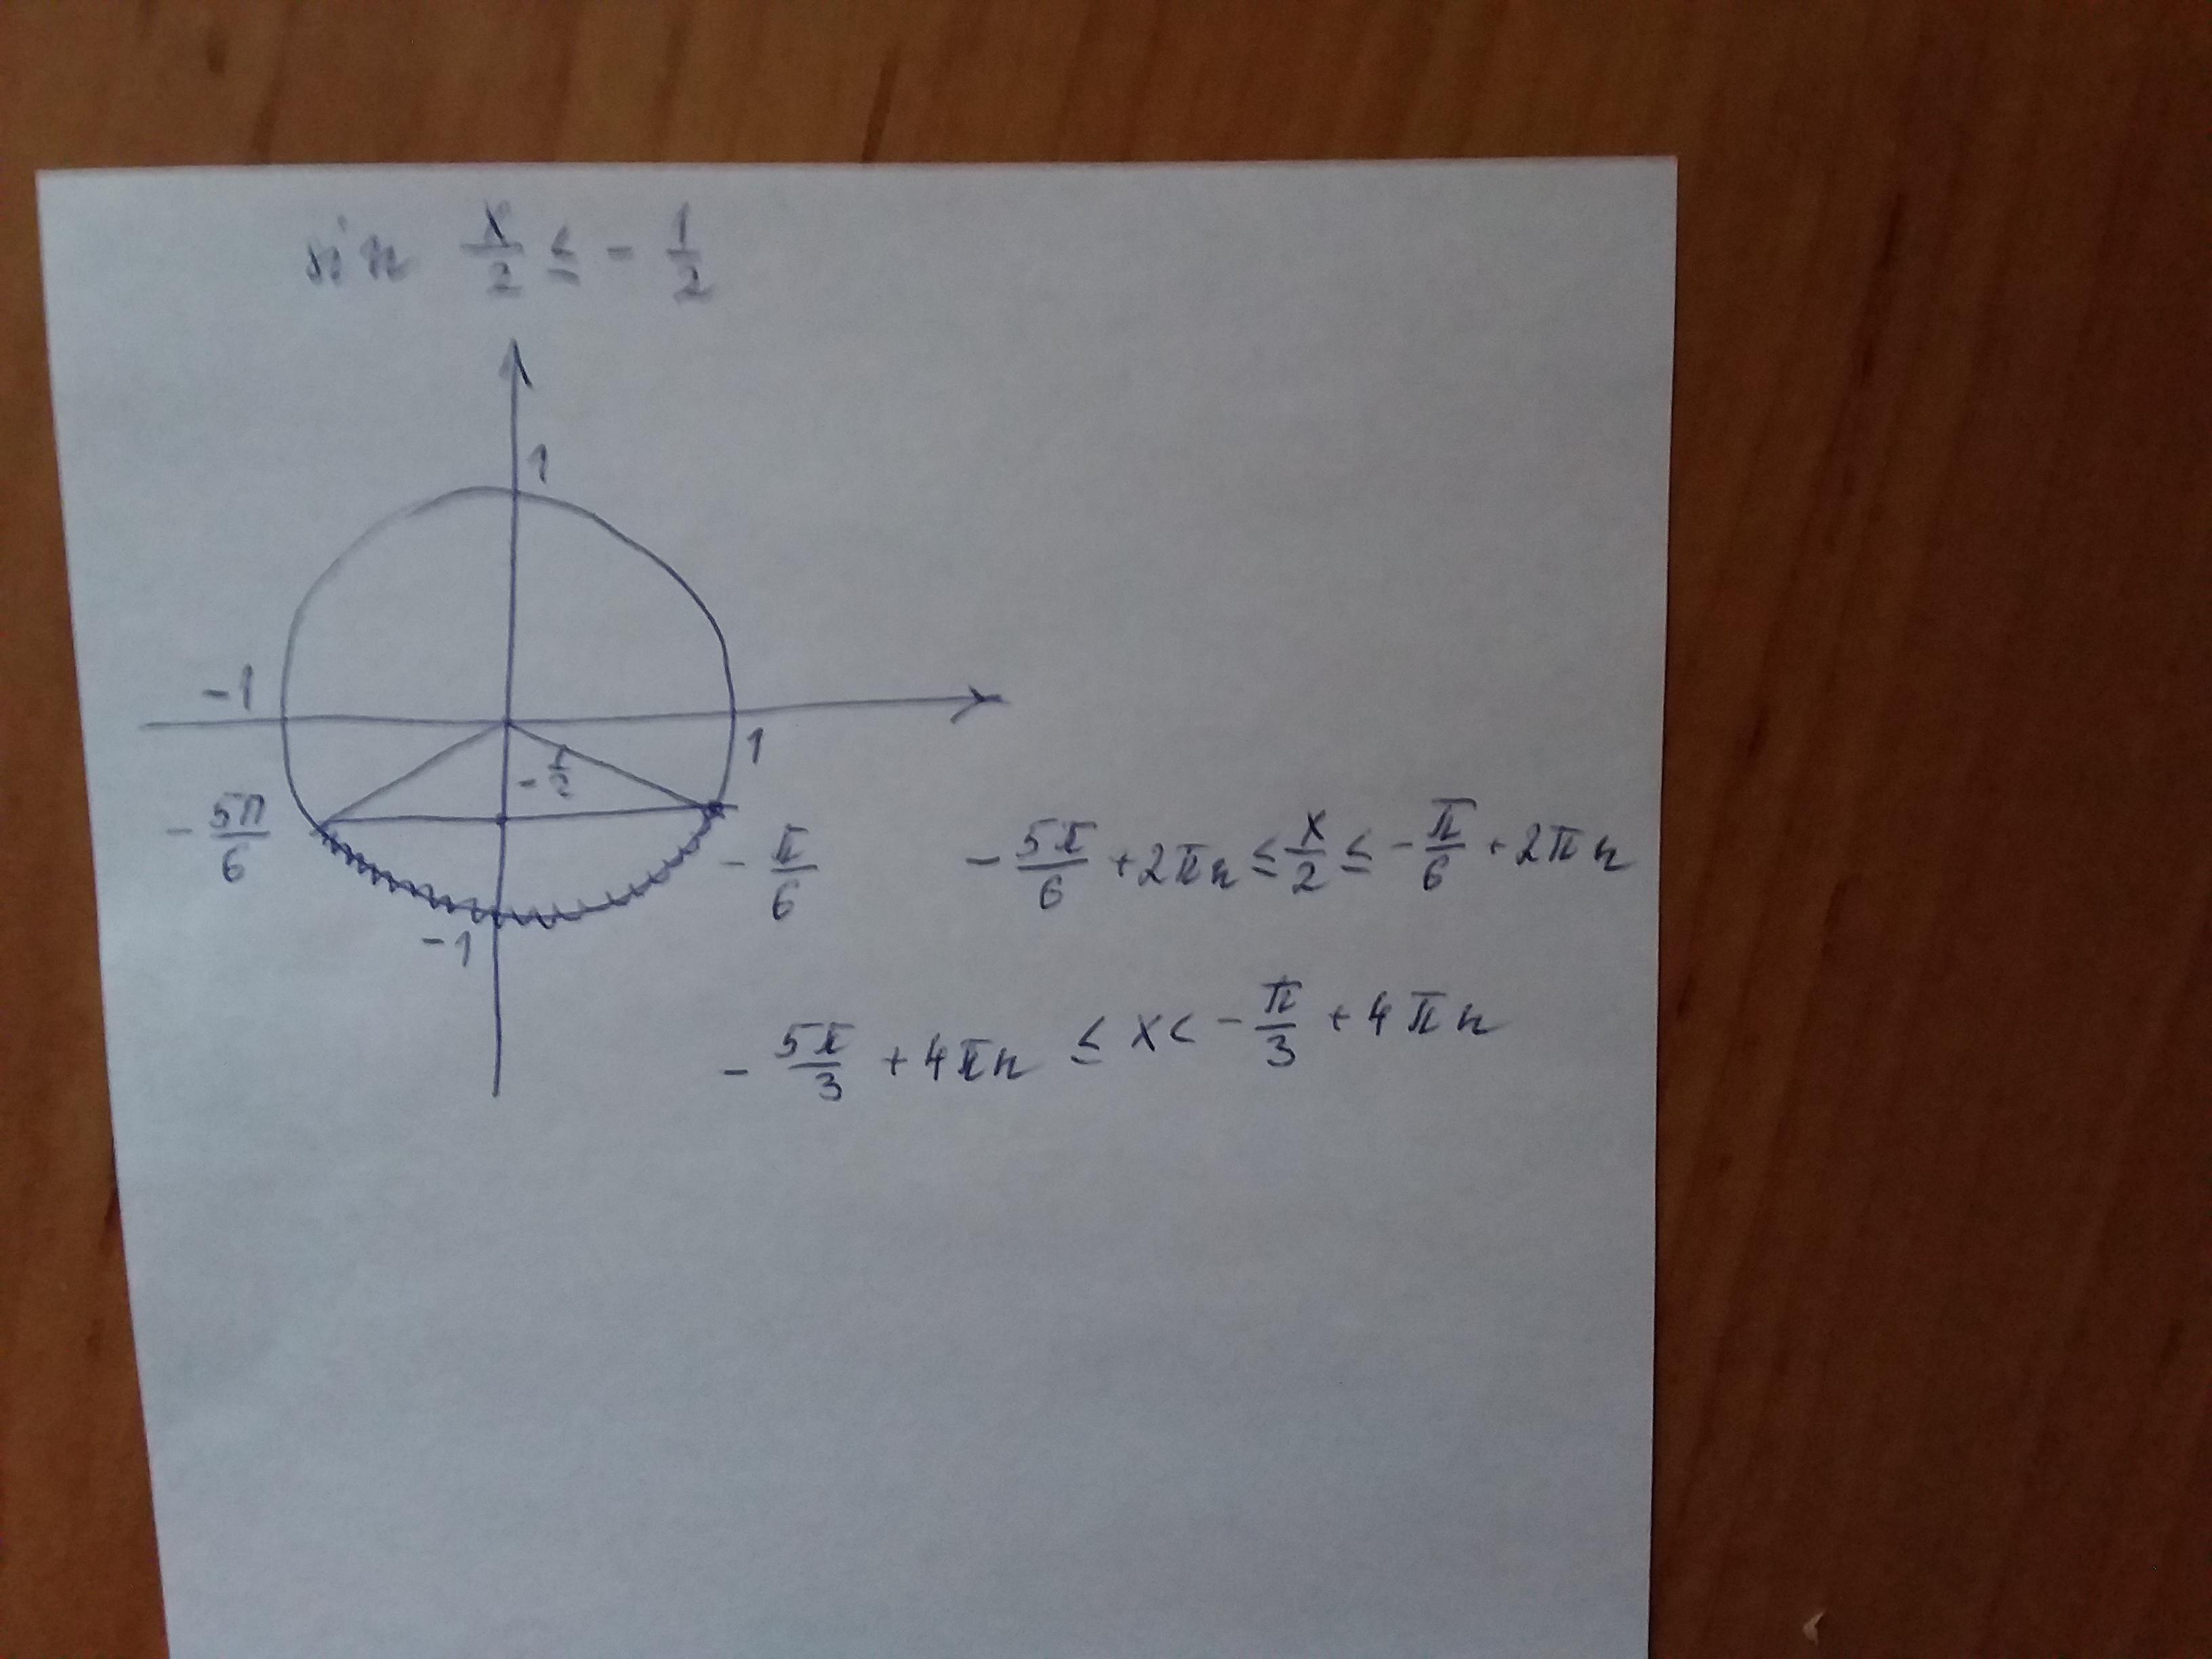 sin x/2 ≤ - 1/2
1
-1
1
- 1/2
- 5π/6
- π/6
- 5π/6 + 2πn ≤ x/2 ≤ - π/6 + 2πn
-1
- 5π/3 + 4πn ≤ x < - π/3 + 4πn